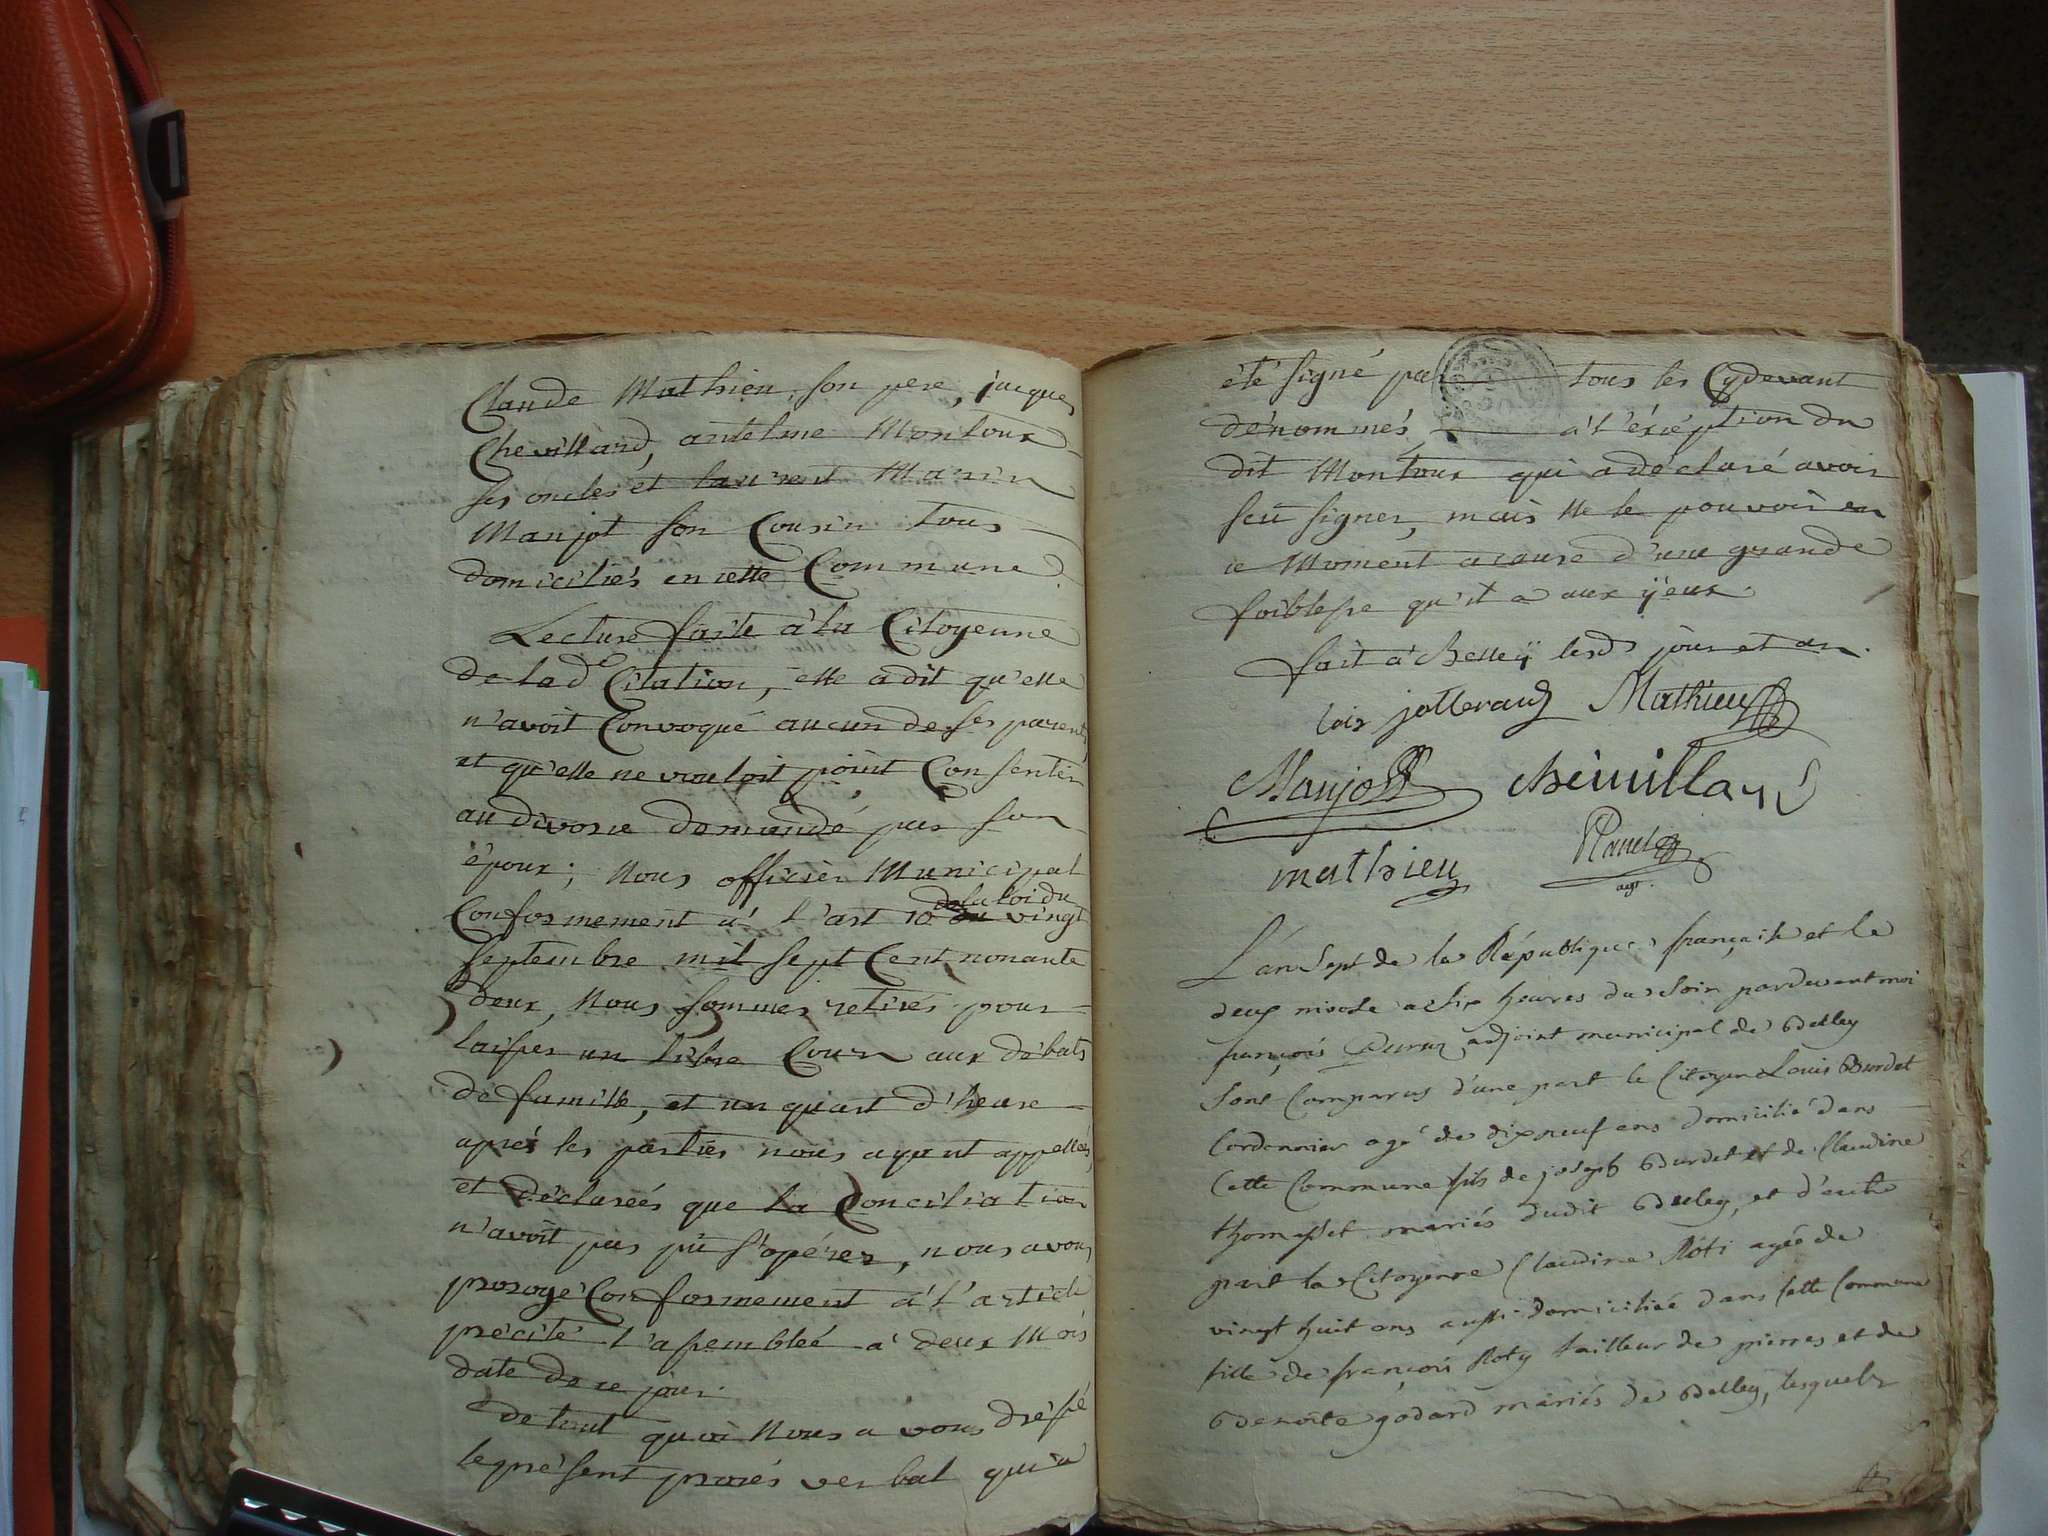 Claude Mathieu, son pere, jacques
Chevilland, antelme Montoux
ses oncles et laurent Marin
Manjot son Cousin tous
domiciliés en cette Commune.
Lecture faite à la Citoyenne
de lad Citation, elle a dit qu'elle
n'avoit Convoqué aucun de ses parents
et qu'elle ne vouloit point Consentir
au divorce demandé par son
époux; Nous officier Municipal
de la loi du
Conformement à l'art 10 vingt
septembre mil sept Cent nonante
deux, Nous sommes retirés pour
laisser un libre Cours aux débats
de famille, et un quart d'heure
aprés les parties nous ayant appellés,
et déclareés que la Conciliation
n'avoit pas pû s'opérer, nous avons
prorogé Conformement à l'article
précité l'assembleé à deux Mois
date de ce jour.
de tout quoi Nous avons dressé
le présent procés verbal qui a
été signé par tous les Cydevant
dénommés, à l'éxception du
dit Montoux qui a déclaré avoir
seu signer, mais Ne le pouvoir en
ce Moment a cause d'une grande
foiblesse qu'il a aux ÿeux.
fait à belleÿ lesd jour et an.
lois jolleraud Mathieu
Manjot cheuilland
mathieu
agt.
L'an Sept de la République française et le
deux nivose a six heures du soir pardevant moi
françois adjoint municipal de Belley
Sont Comparus d'une part le Citoyen Louis Burdet
Cordonnier agé de dixneuf ans domicilié dans
Cette Commune fils de joseph Burdet et de Claudine
thomasset mariés dudit Belley, et d'autre
part la Citoyenne Claudine Roti agée de
vingt huit ans aussi domiciliée dans cette Commune
fille de françois Roty tailleur de pierres et de
Benoite godard mariés de Belley, lesquels